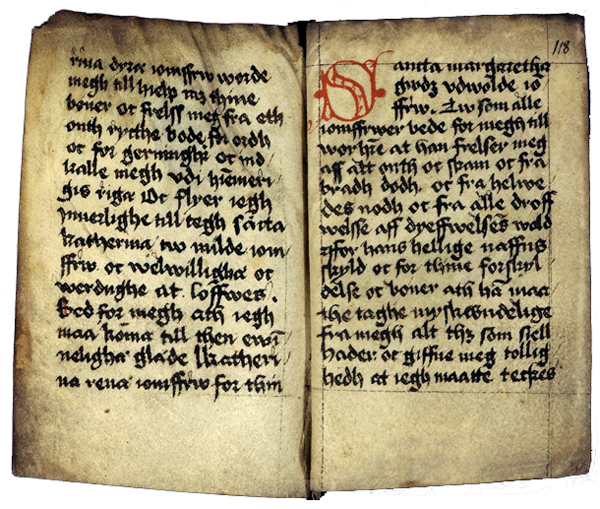 rina dyræ iomffrw worde
megh till hielp mz thine
bøner oc frelss meg fra eth
onth rycthe bode for ordh
oc for gerninghr oc ind
kalle megh vdi hiemeri
gis rige Oc flyer iegh
ynnerlighe till tegh sācta
katherina tw milde iom
ffrw oc welwilligha oc
werdughe at loffwes.
Bed for megh ath iegh
maa koma till then ewī
neligha glade Katheri
na rena iomffrw for thin
118
Sancta margaretha
gwdz vdwolde io
ffrw. Tw som alle
iomffrwer bede for megh till
wor hre at han frelser meg
aff alt onth oc skam oc fra
bradh dødh. oc fra helwe
des nødh oc fra alle drøff
welsse aff dyeffwelsens wald
ffor hans hellige naffns
skyld oc for thine forskyl
delse oc bøner ath hā maa
the taghe myskwndelige
fra megh alt thz som siell
hader oc giffue meg tollig
hedh at iegh maatte teckes